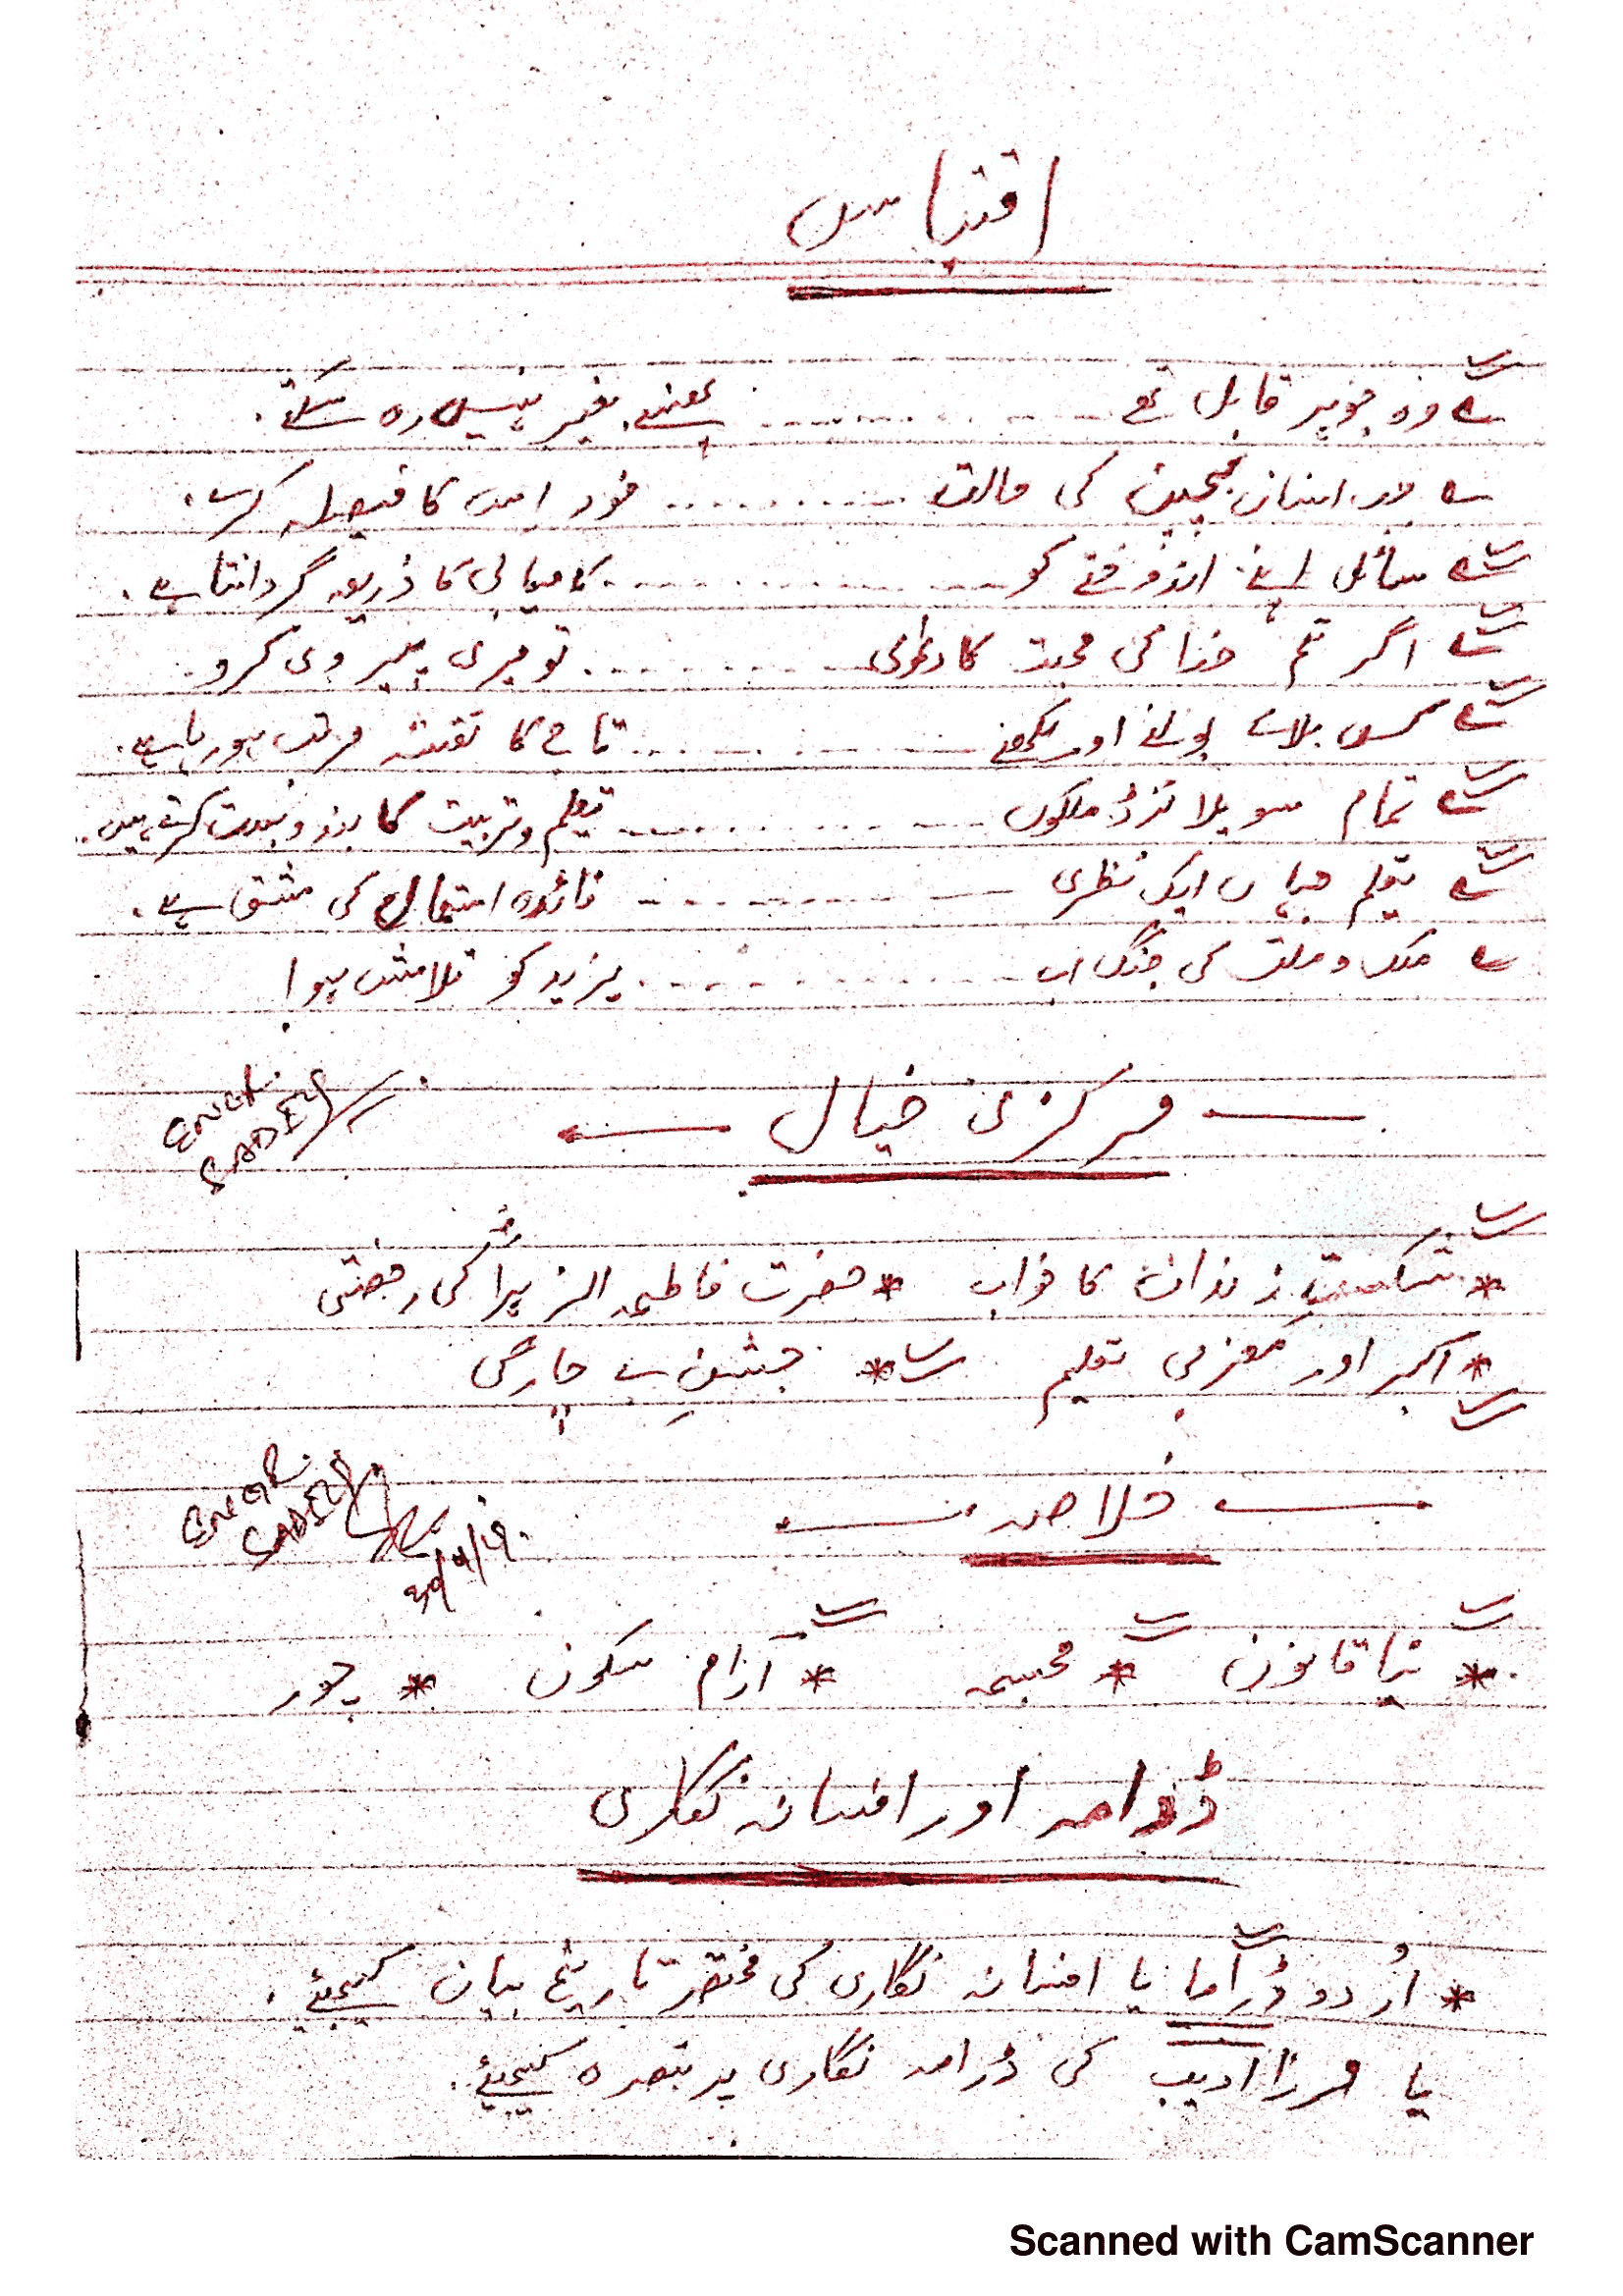 اقتباس
وہ جوہر قابل تھے ---------- پھنسے بغیر نہیں رہ سکتے۔
انسان بچپن کی حالت ---------- خود اس کا فیصلہ کرے۔
سائل اپنے اندوختے کو ---------- کامیابی کا ذریعہ گردانتا ہے۔
اگر تم خدا کی محبت کا دعویٰ ---------- تو میری پیروی کرو۔
کس بلا سے بولنے اور لکھنے ---------- تاج کا نقشہ مرتب ہو رہا ہے۔
تمام سویلائزڈ ملکوں ---------- تعلیم و تربیت کا بندوبست کرتے ہیں۔
تعلیم جہاں ایک نظری ---------- فائدہ استعمال کی مشق ہے۔
ملک و ملت کی جنگ اب ---------- یزید کو تلاش ہوا
مرکزی خیال
ENGR. SADEY
* شکستِ زنداں کا خواب * حضرت فاطمہ الزہراؓ کی رخصتی
* اکبر اور مغربی تعلیم * جشنِ بے چارگی
خلاصہ
ENGR. SADEY
* نیا قانون * مجسمہ * آرام سکون * چور
ڈرامہ اور افسانہ نگاری
* اُردو ڈرآما یا افسانہ نگاری کی مختصر تاریخ بیان کیجیئے۔
یا مرزا ادیب کی ڈرامہ نگاری پر تبصرہ کیجیئے۔
Scanned with CamScanner